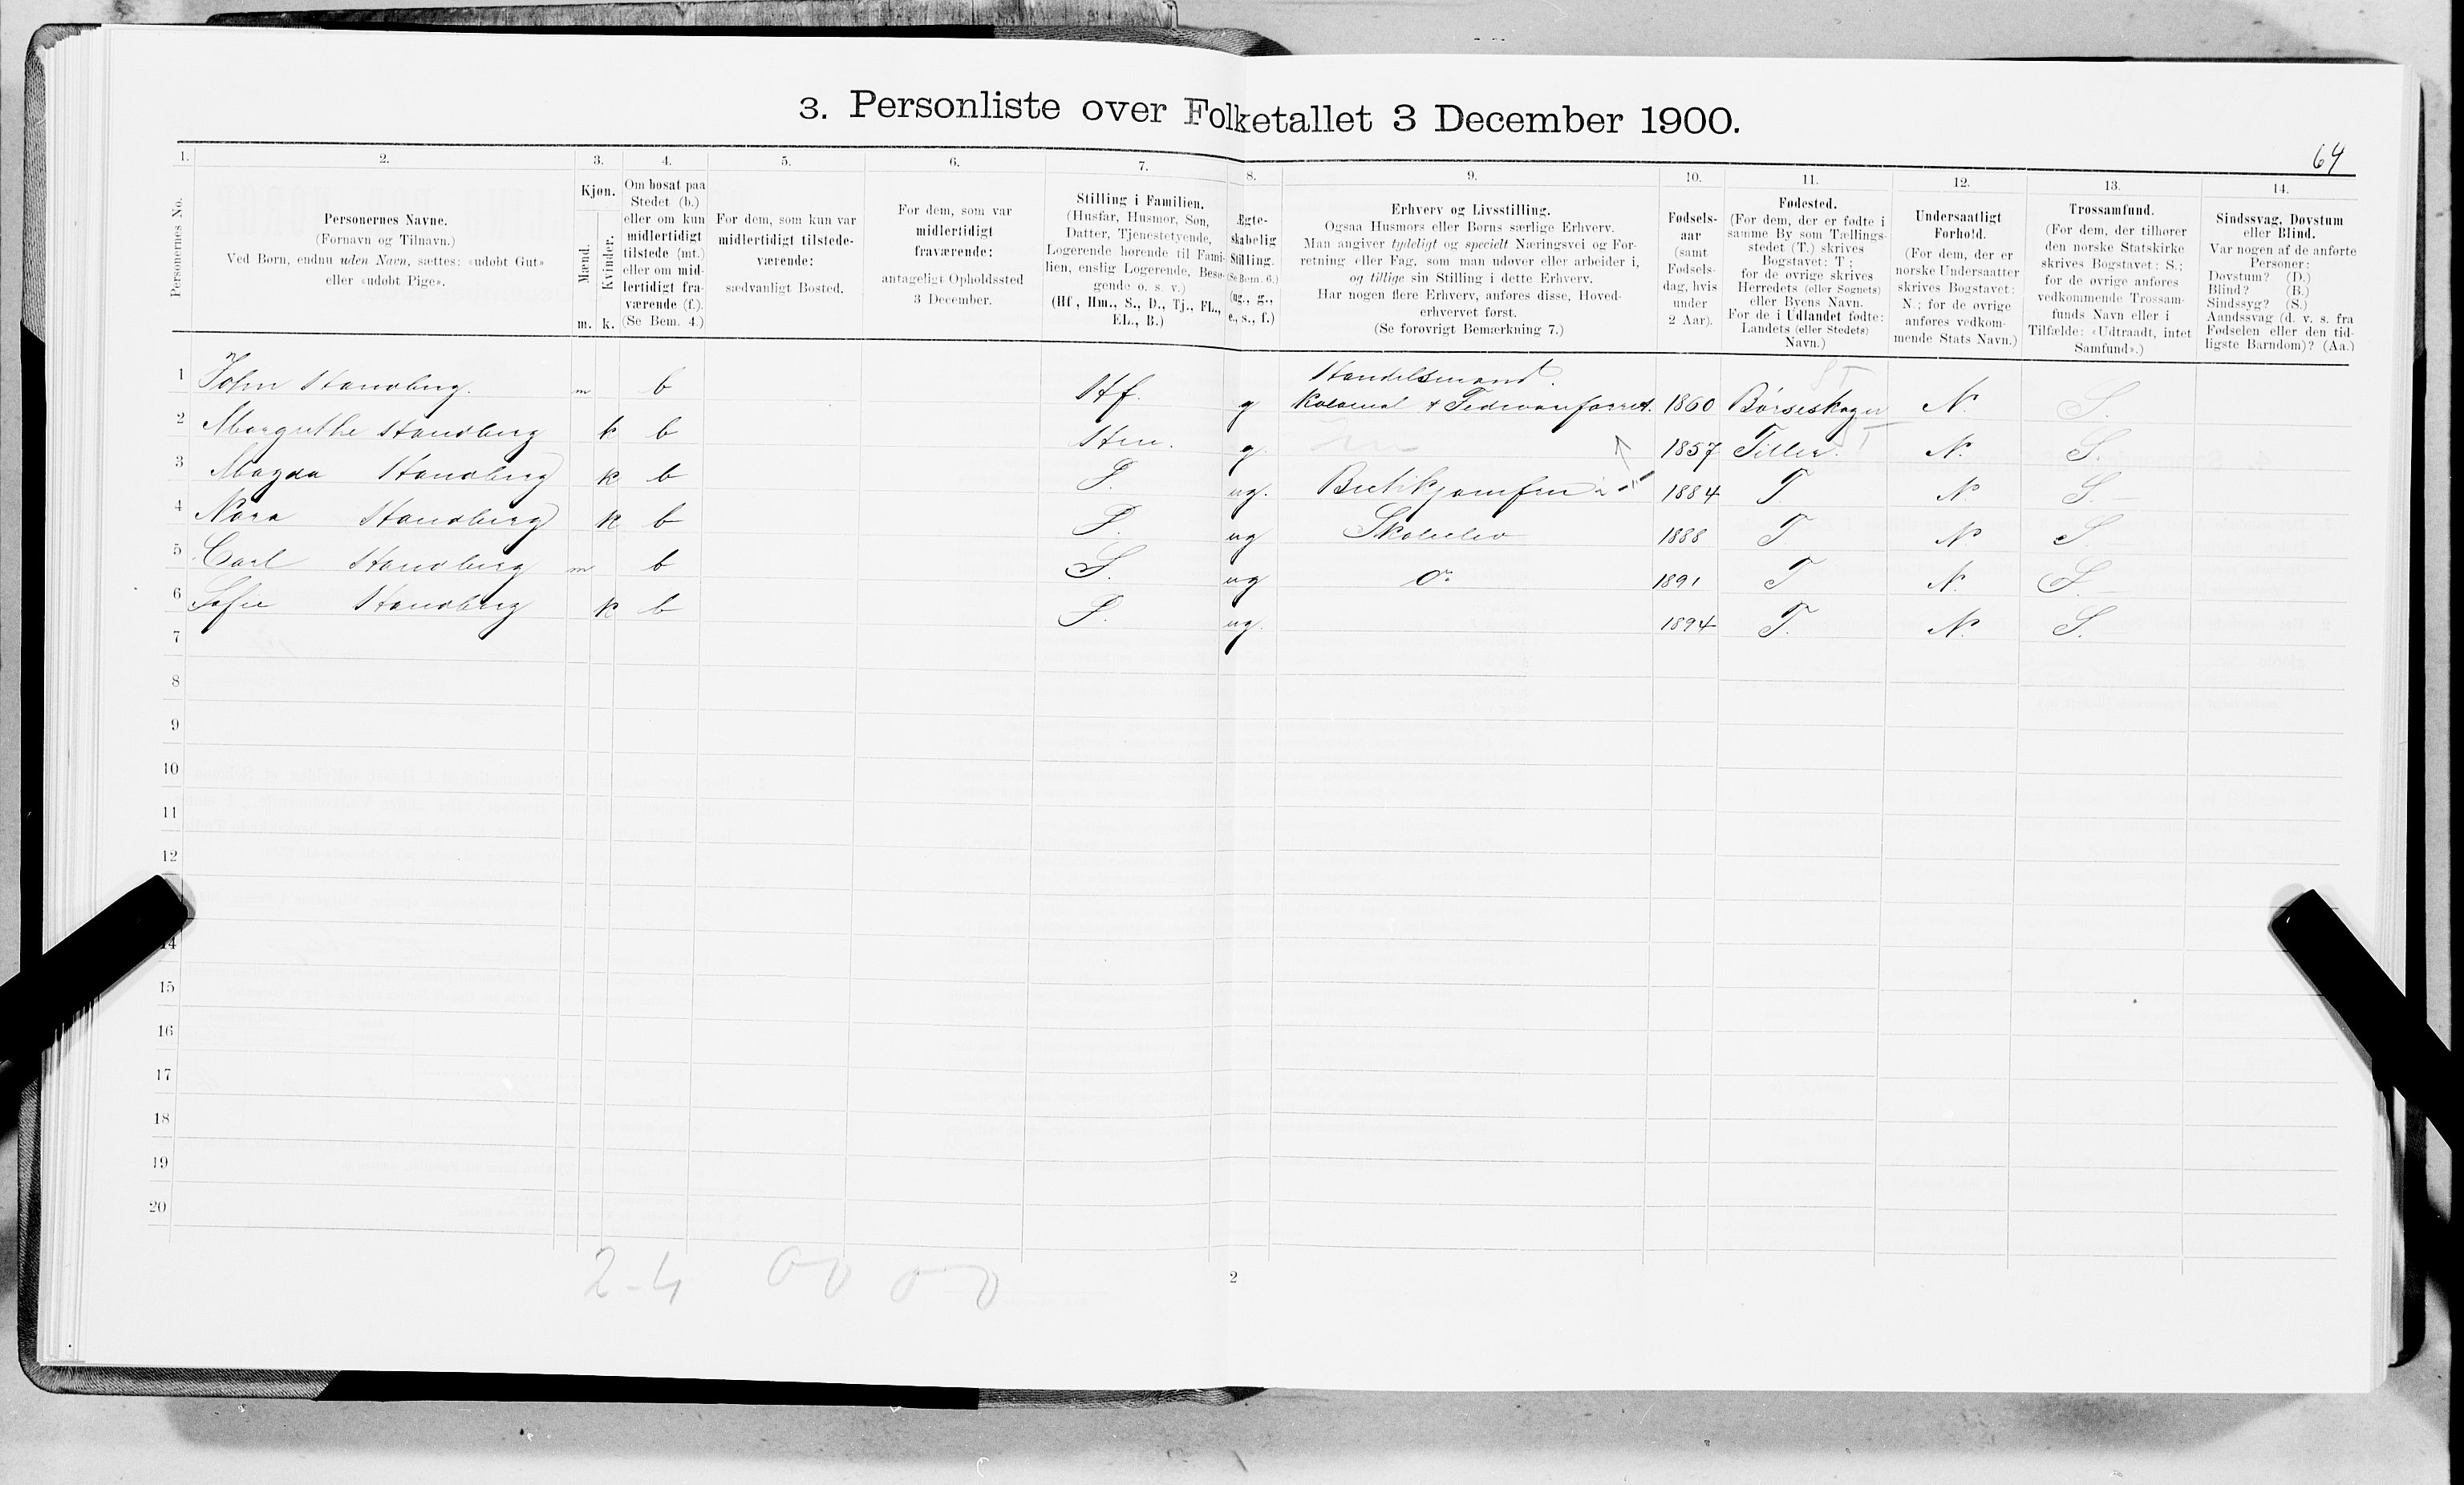 3. Personliste over Folketallet 3 December 1900.
64
1. 2. 3. 4. 5. 6. 7. 8. 9. 10. 11. 12. 13. 14.
Personernes No.
Personernes Navne.
(Fornavn og Tilnavn.)
Ved Børn, endnu uden Navn, sættes: «udøbt Gut»
eller «udøbt Pige».
Kjøn.
Mænd.
Kvinder.
m. k.
Om bosat paa
Stedet (b.)
eller om kun
midlertidigt
tilstede (mt.)
eller om mid-
lertidigt fra-
værende (f.).
(Se Bem. 4.)
For dem, som kun var
midlertidigt tilstede-
værende:
sædvanligt Bosted.
For dem, som var
midlertidigt
fraværende:
antageligt Opholdssted
3 December.
Stilling i Familien.
(Husfar, Husmor, Søn,
Datter, Tjenestetyende,
Logerende hørende til Fami-
lien, enslig Logerende, Besø-
gende o. s. v.)
(Hf., Hm., S., D., Tj., FL.,
EL., B.)
Ægte-
skabelig
Stilling.
(Se Bem. 6.)
(ug., g.,
e., s., f.)
Erhverv og Livsstilling.
Ogsaa Husmors eller Børns særlige Erhverv.
Man angiver tydeligt og specielt Næringsvei og For-
retning eller Fag, som man udøver eller arbeider i,
og tillige sin Stilling i dette Erhverv.
Har nogen flere Erhverv, anføres disse, Hoved-
erhvervet først.
(Se forøvrigt Bemærkning 7.)
Fødsels-
aar
(samt
Fødsels-
dag, hvis
under
2 Aar).
Fødested.
(For dem, der er fødte i
samme By som Tællings-
stedet (T.) skrives
Bogstavet: T;
for de øvrige skrives
Herredets (eller Sognets)
eller Byens Navn.
For de i Udlandet fødte:
Landets (eller Stedets)
Navn.)
Undersaatligt
Forhold.
(For dem, der er
norske Undersaatter
skrives Bogstavet:
N.; for de øvrige
anføres vedkom-
mende Stats Navn.)
Trossamfund.
(For dem, der tilhører
den norske Statskirke
skrives Bogstavet: S.;
for de øvrige anføres
vedkommende Trossam-
funds Navn eller i
Tilfælde: «Udtraadt, intet
Samfund».)
Sindssvag, Døvstum
eller Blind.
Var nogen af de anførte
Personer:
Døvstum? (D.)
Blind? (B.)
Sindssyg? (S.)
Aandssvag (d. v. s. fra
Fødselen eller den tid-
ligste Barndom)? (Aa.)
Handelsmand.
1 John Handberg. m b Hf. g Kolonial & 1860 Børseskogn N. S.
2 Margrethe Handberg k b Hm. g. 1857 Tiller. N. S.
3 Magda Handberg k b D. ug. Butikjomfru 1884 T N S.
4 Nora Handberg k b D. ug Skoleelev 1888 T N S.
5 Carl Handberg m b S. ug Do 1891 T N. S.
6 Sofie Handberg k b D. ug. 1894 T. N. S.
7
8
9
10
11
12
14
15
16
17
18
19
20
2-4 0 0 0 0
2